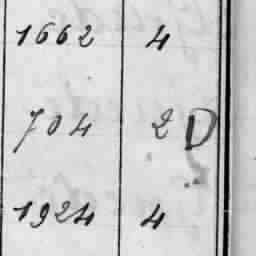 1662 4
704 2 D
1924 4